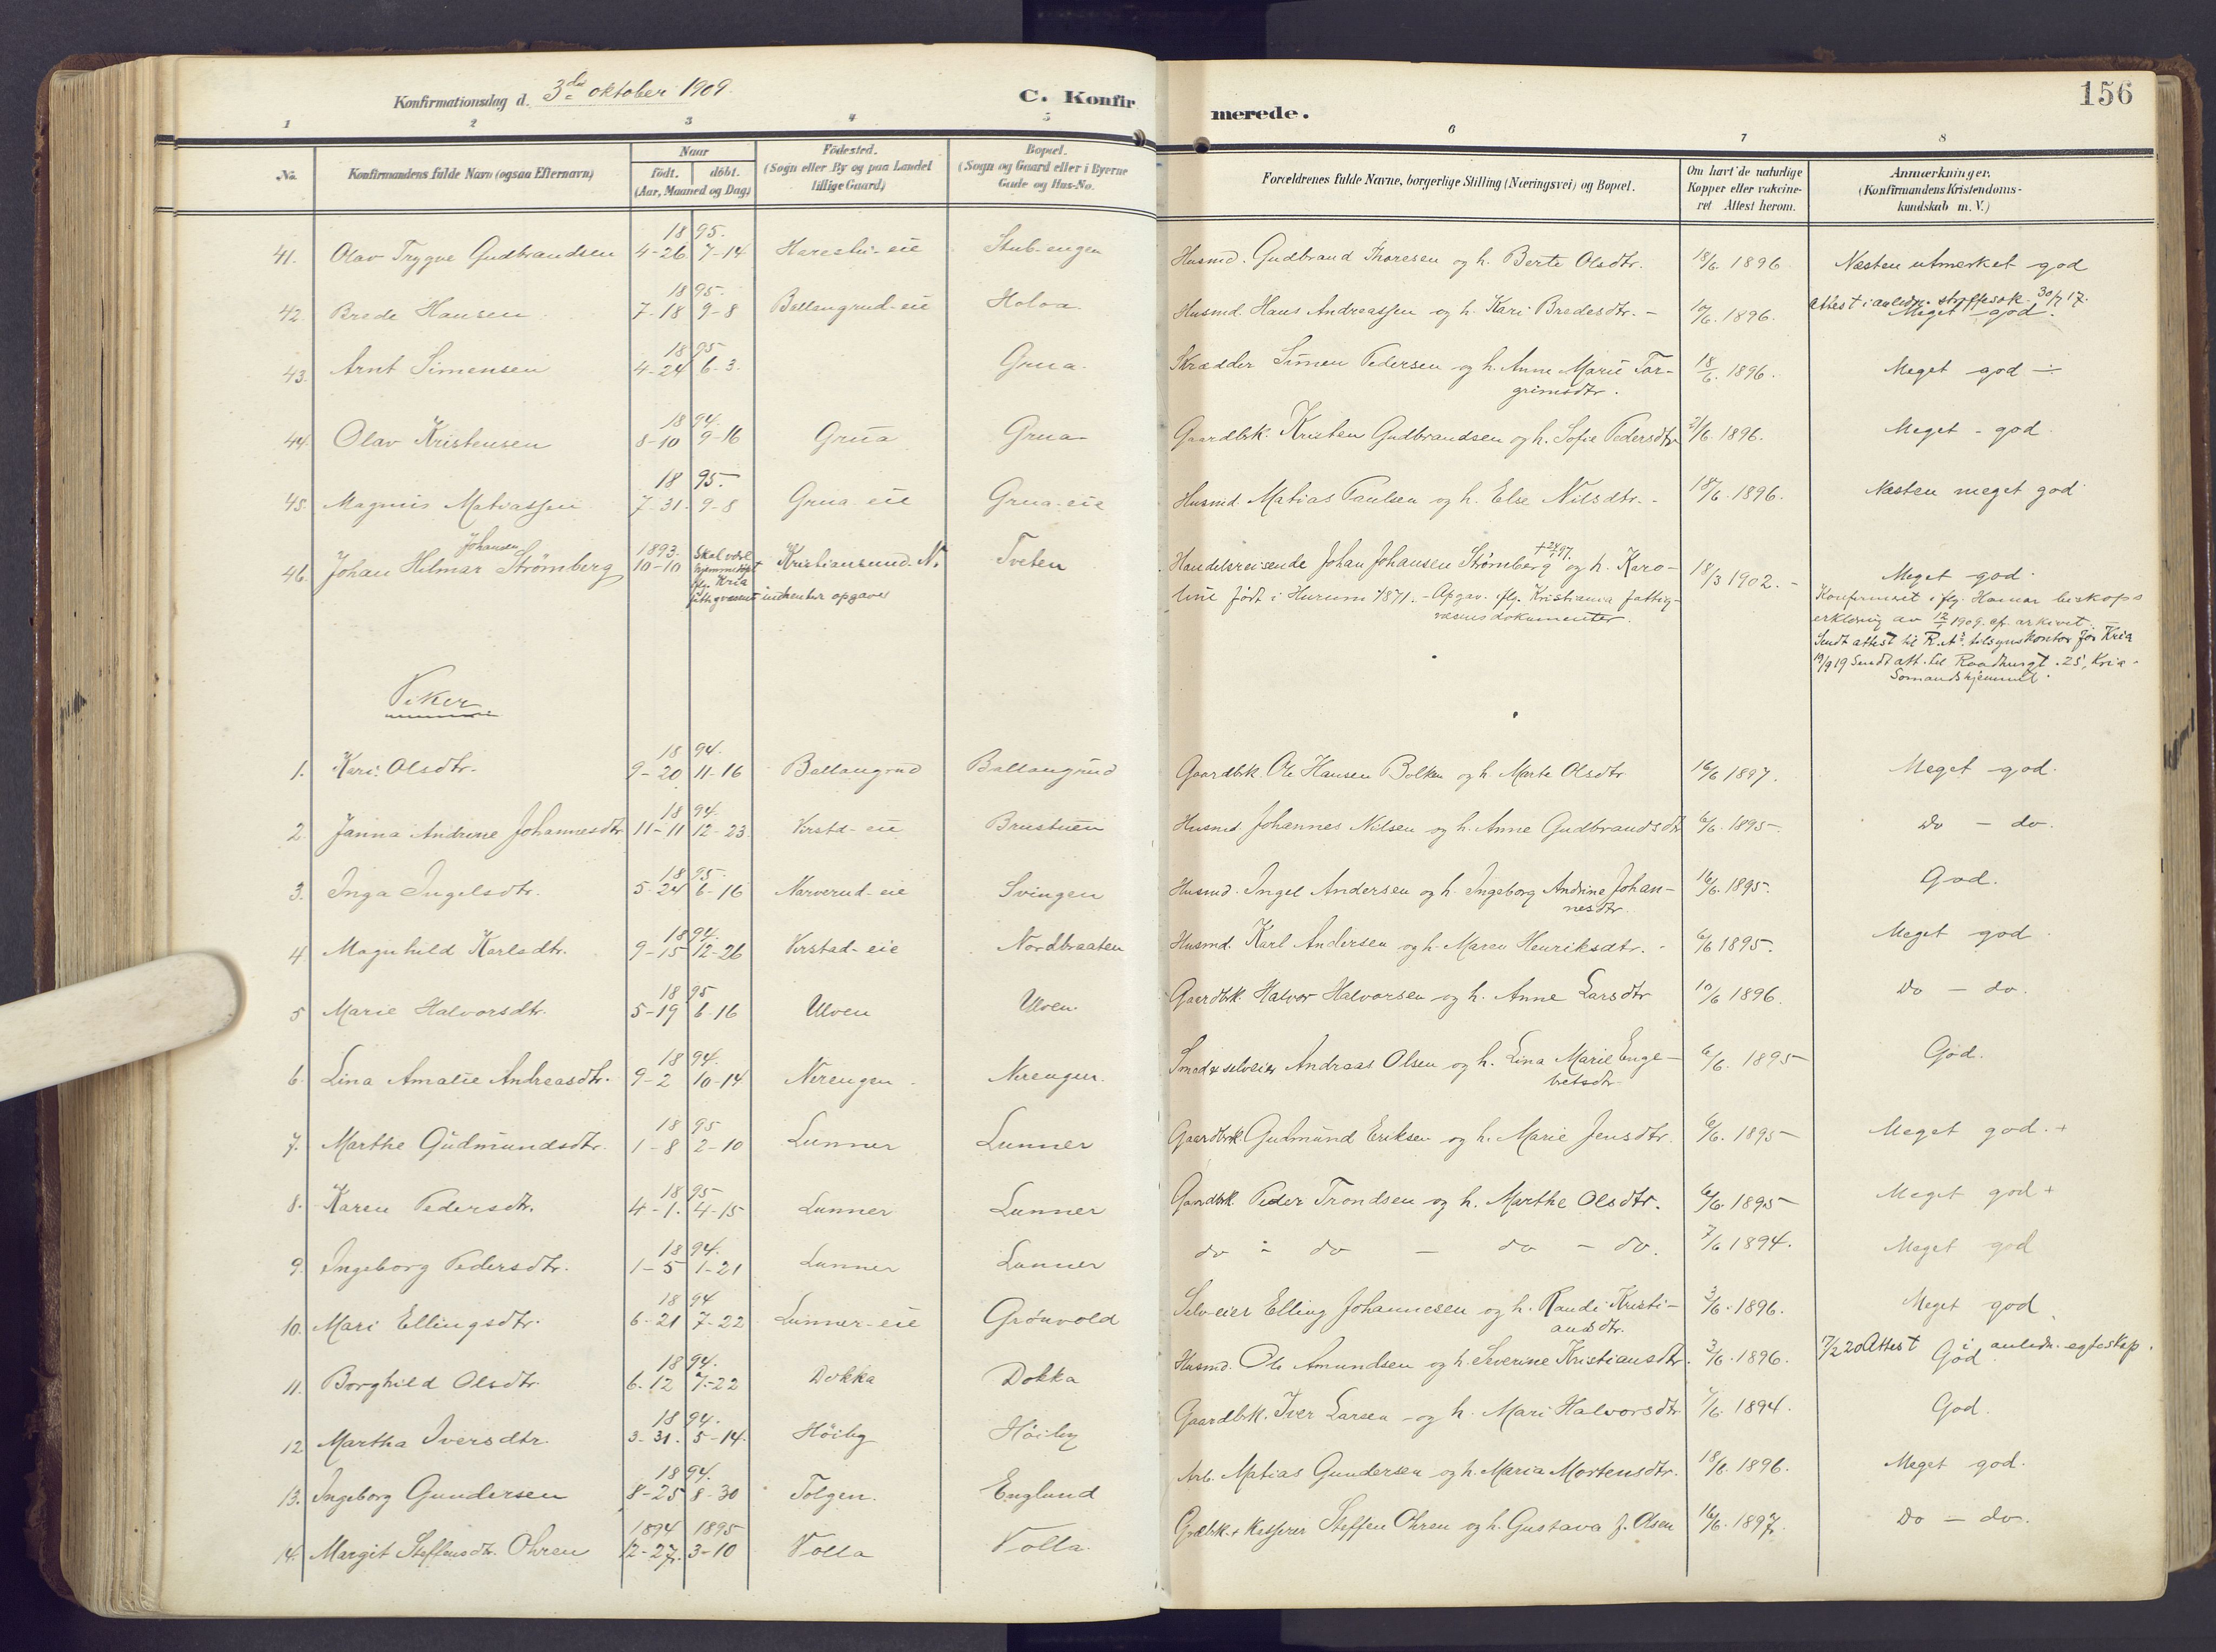 Konfirmationsdag d. 3die oktober 1909.
C. Konfirmerede.
156
1 2 3 4 5 6 7 8
No.
Konfirmandens fulde Navn (ogsaa Efternavn)
Naar
født. døbt.
(Aar, Maaned og Dag)
Fødested.
(Sogn eller By og paa Landet
tillige Gaard)
Bopæl.
(Sogn og Gaard eller i Byerne
Gade og Hus-No.
Forældrenes fulde Navne, borgerlige Stilling (Næringsvei) og Bopæl.
Om havt de naturlige
Kopper eller vakcine-
ret Attest herom.
Anmærkninger.
(Konfirmandens Kristendoms-
kundskab m. V.)
41. Olav Trygve Gudbrandsen 1895. 4-26 7-14 Harestu-eie Stub-engen Husmd. Gudbrand Thoresen og h. Berte Olsdtr. 18/6 1896 Næsten utmerket god
42. Brede Hansen 1895. 7-18 9-8 Ballangrud-eie Holoa Husmd. Hans Andreassen og h. Kari Bredesdtr. - 10/6. 1896. Attest i anledn. straffesak 30/7 17.
Meget god.
43. Arnt Simensen 1895 4-24 6-3. Grua. Skrædder Simen Pedersen og h. Anne Marie Tor-
grimsdtr. 18/6. 1896. Meget god ÷
44. Olav Kristensen 1894. 8-10 9-16 Grua Grua Gaardbrk. Kristen Gudbrandsen og h. Sofie Pedersdtr. 3/6. 1896. Meget - god.
45. Magnus Matiassen 1895. 7-31. 9-8 Grua-eie Grua-eie Husmd. Matias Paulsen og h. Else Nilsdtr. - 18/6. 1896. Næsten meget god
Johansen
46. Johan Hilmar Strømberg 1893. 10-10 Skal være
hjemmedøpt
iflg. Kria
fattigvæsent indhentede opgaver Kristiansund. N. Tveten Handelsreisende Johan Johansen Strømberg og h. Karo-
line født i Hurum 1871. - Opgav. iflg. Kristiania fattig-
væsens dokumenter. 18/3 1902. - Meget god.
Konfirmeret iflg. Hamar biskops
erklæring av 12/1 1909. cfr. arkivet. -
Sendt attest til R. tilsynskontor for Kria
19/9 19 Sendt att. til Raadhusgt. 25, Kria.
Sømandshjemmet.
Piker
1. Kari Olsdtr. 1894. 9-20 11-16 Ballangrud Ballangrud Gaardbrk. Ole Hansen Bolken og h. Marte Olsdtr 16/6 1897. Meget god.
2. Janna Andrine Johannesdtr 1894. 11-11 12-23 Kirstd-eie Brustuen Husmd Johannes Nilsen og h. Anne Gudbrandsdtr 6/6. 1895-. do - do.
3. Inga Ingelsdtr. 1895. 5-24 6-16 Narverud-eie Svingen Husmd. Ingel Andersen og h. Ingeborg Andrine Johan-
nesdtr. 16/6. 1895. God.
4. Magnhild Karlsdtr. 1894. 9-15 12-26 Kirstad-eie Nordbraaten Husmd. Karl Andersen og h. Maren Henriksdtr. - 6/6 1895. Meget god.
5 Marie Halvorsdtr. 1895 5-19 6-16 Ulven Ulven. Gaardbrk. Halvor Halvorsen og h. Anne Larsdtr 10/6 1896. do - do.
6. Lina Amalie Andreasdtr. 1894. 9-2 10-14 Nerengen Nerengen. Smed & selveier Andreas Olsen og h. Lina Marie Enge-
bretsdtr 6/6. 1895- God.
7. Marthe Gudmundsdtr. 1895 1-8 2-10 Lunner Lunner Gaardbrk. Gudmund Eriksen og h. Marie Jensdtr. 6/6. 1895- Meget god. +
8. Karen Pedersdtr. 1895 4-1. 4-15 Lunner Lunner Gaardbrk. Peder Trondsen og h. Marthe Olsdtr. 6/6. 1895- Meget god +
9. Ingeborg Pedersdtr. 1894. 1-5 1-21 Lunner Lunner do - do - do - do. 7/6 1894. Meget god
10. Mari Ellingsdtr. 1894 6-21 7-22 Lunner-eie Grønvold Selv-eier Elling Johannesen og h. Randi Kristi-
ansdtr. 3/6. 1896. Meget god
11. Borghild Olsdtr. 1894. 6-12 7-22 Dokka Dokka Husmd. Ole Amundsen og h. Severine Kristiansdtr. 3/6. 1896. 7/2 20 Attest i anledn. egteskap.
God
12 Martha Iversdtr. 1894. 3-31. 5-14. Höiby Höiby Gaardbrk. Iver Larsen - og h. Mari Halvorsdtr. 7/6. 1894. God.
13. Ingeborg Gundersen 1894. 8-25 8-30 Tolgen. Englund Arb. Matias Gundersen og h. Maria Mortensdtr. 18/6. 1896. Meget god.
14. Margit Steffensdtr. Ohren 1894 1895 12-27. 3-10 Volla Volla. Grdbrk. + Kasserer Steffen Ohren og h. Gustava f. Olsen 16/6. 1897. do - do.